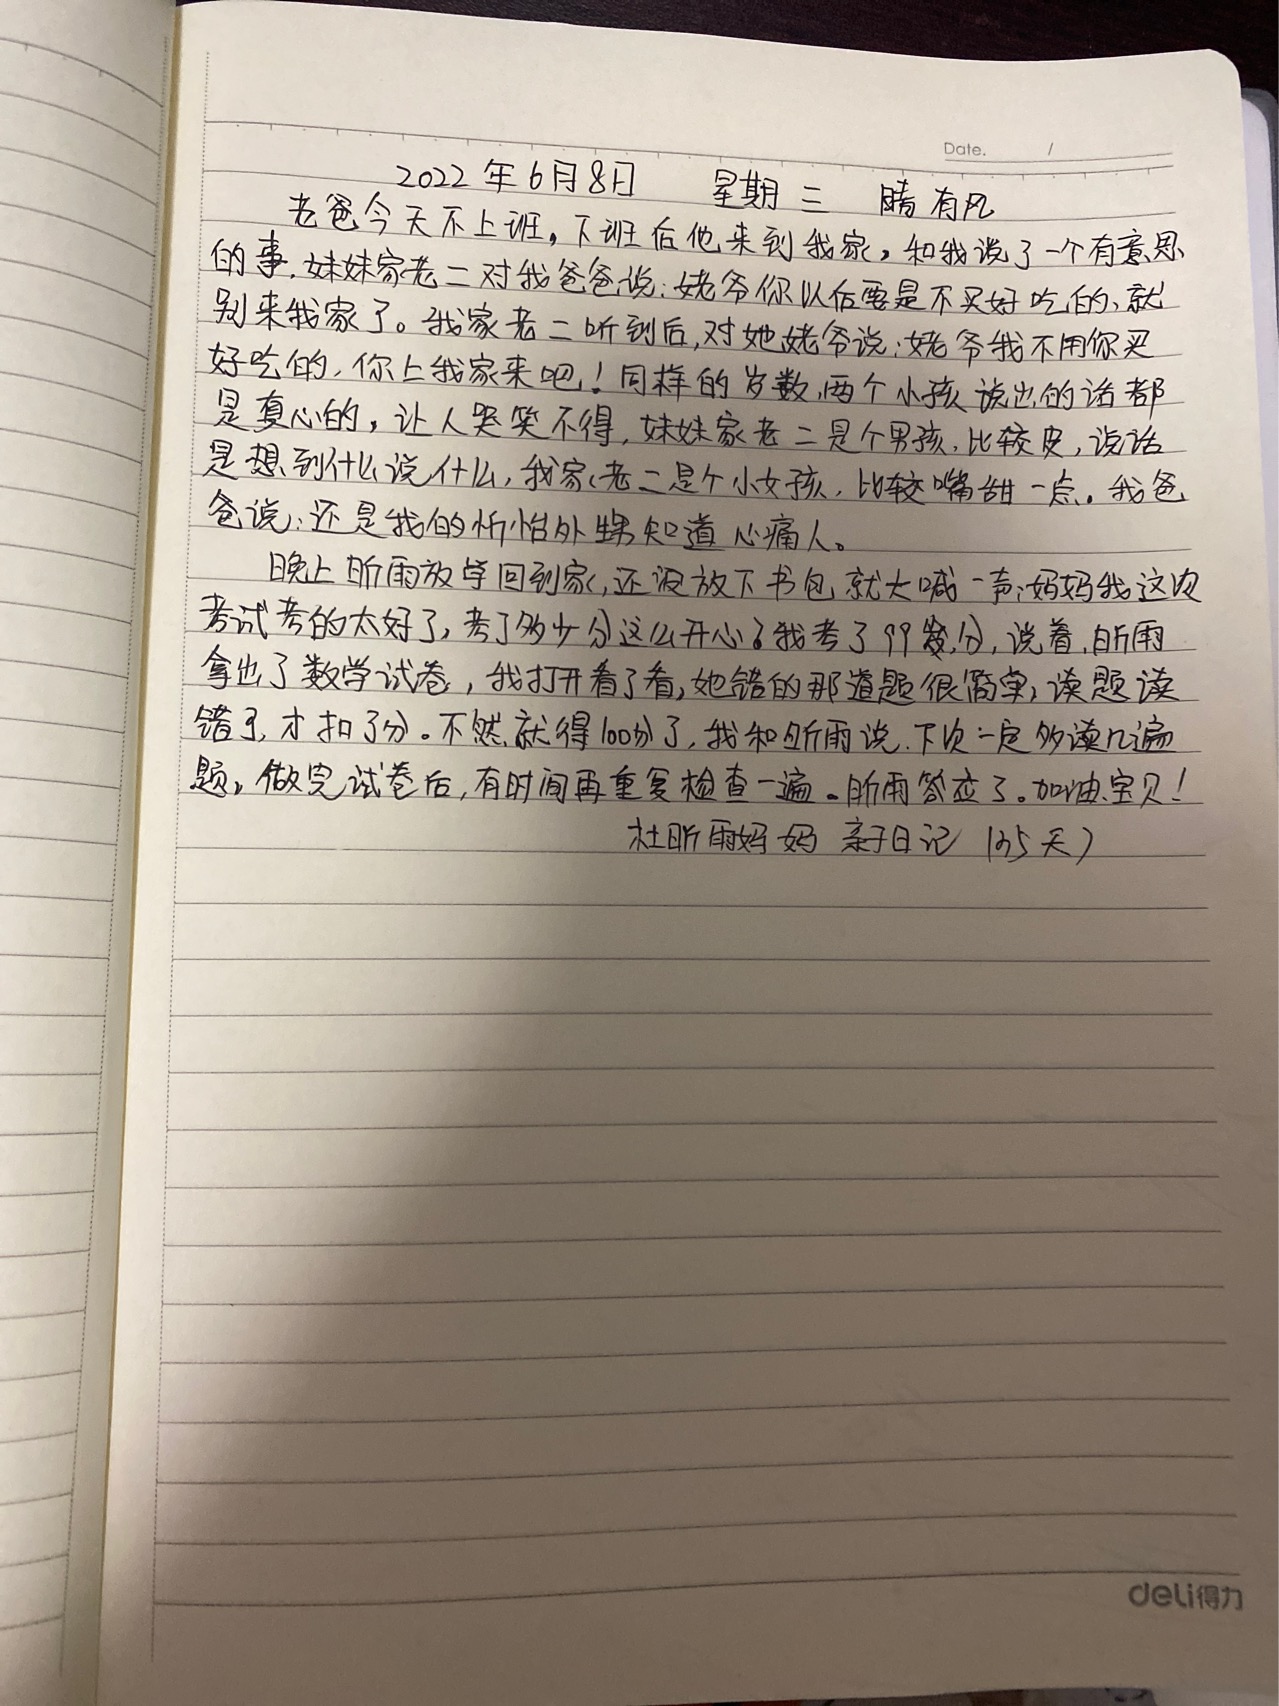 Date. /
2022年6月8日 星期三 晴有风
老爸今天不上班，下班后他来到我家，和我说了一个有意思
的事.妹妹家老二对我爸爸说:姥爷你以后要是不买好吃的、就
别来我家了。我家老二听到后,对她姥爷说:姥爷我不用你买
好吃的,你上我家来吧!同样的岁数,两个小孩说出的话都
是真心的，让人哭笑不得,妹妹家老二是个男孩,比较皮,说话
是想到什么说什么,我家老二是个小女孩,比较嘴甜一点。我爸
爸说:还是我的忻怡外甥知道心痛人。
晚上昕雨放学回到家,还没放下书包就大喊一声:妈妈我这次
考试考的太好了,考了多少分这么开心?我考了99分,说着,昕雨
拿出了数学试卷,我打开看了看,她错的那道题很简单,读题读
错了,才扣了分。不然就得100分了,我和昕雨说.下次一定多读几遍
题,做完试卷后,有时间再重复检查一遍。昕雨答应了。加油宝贝!
杜昕雨妈妈 亲子日记 天)
deli得力